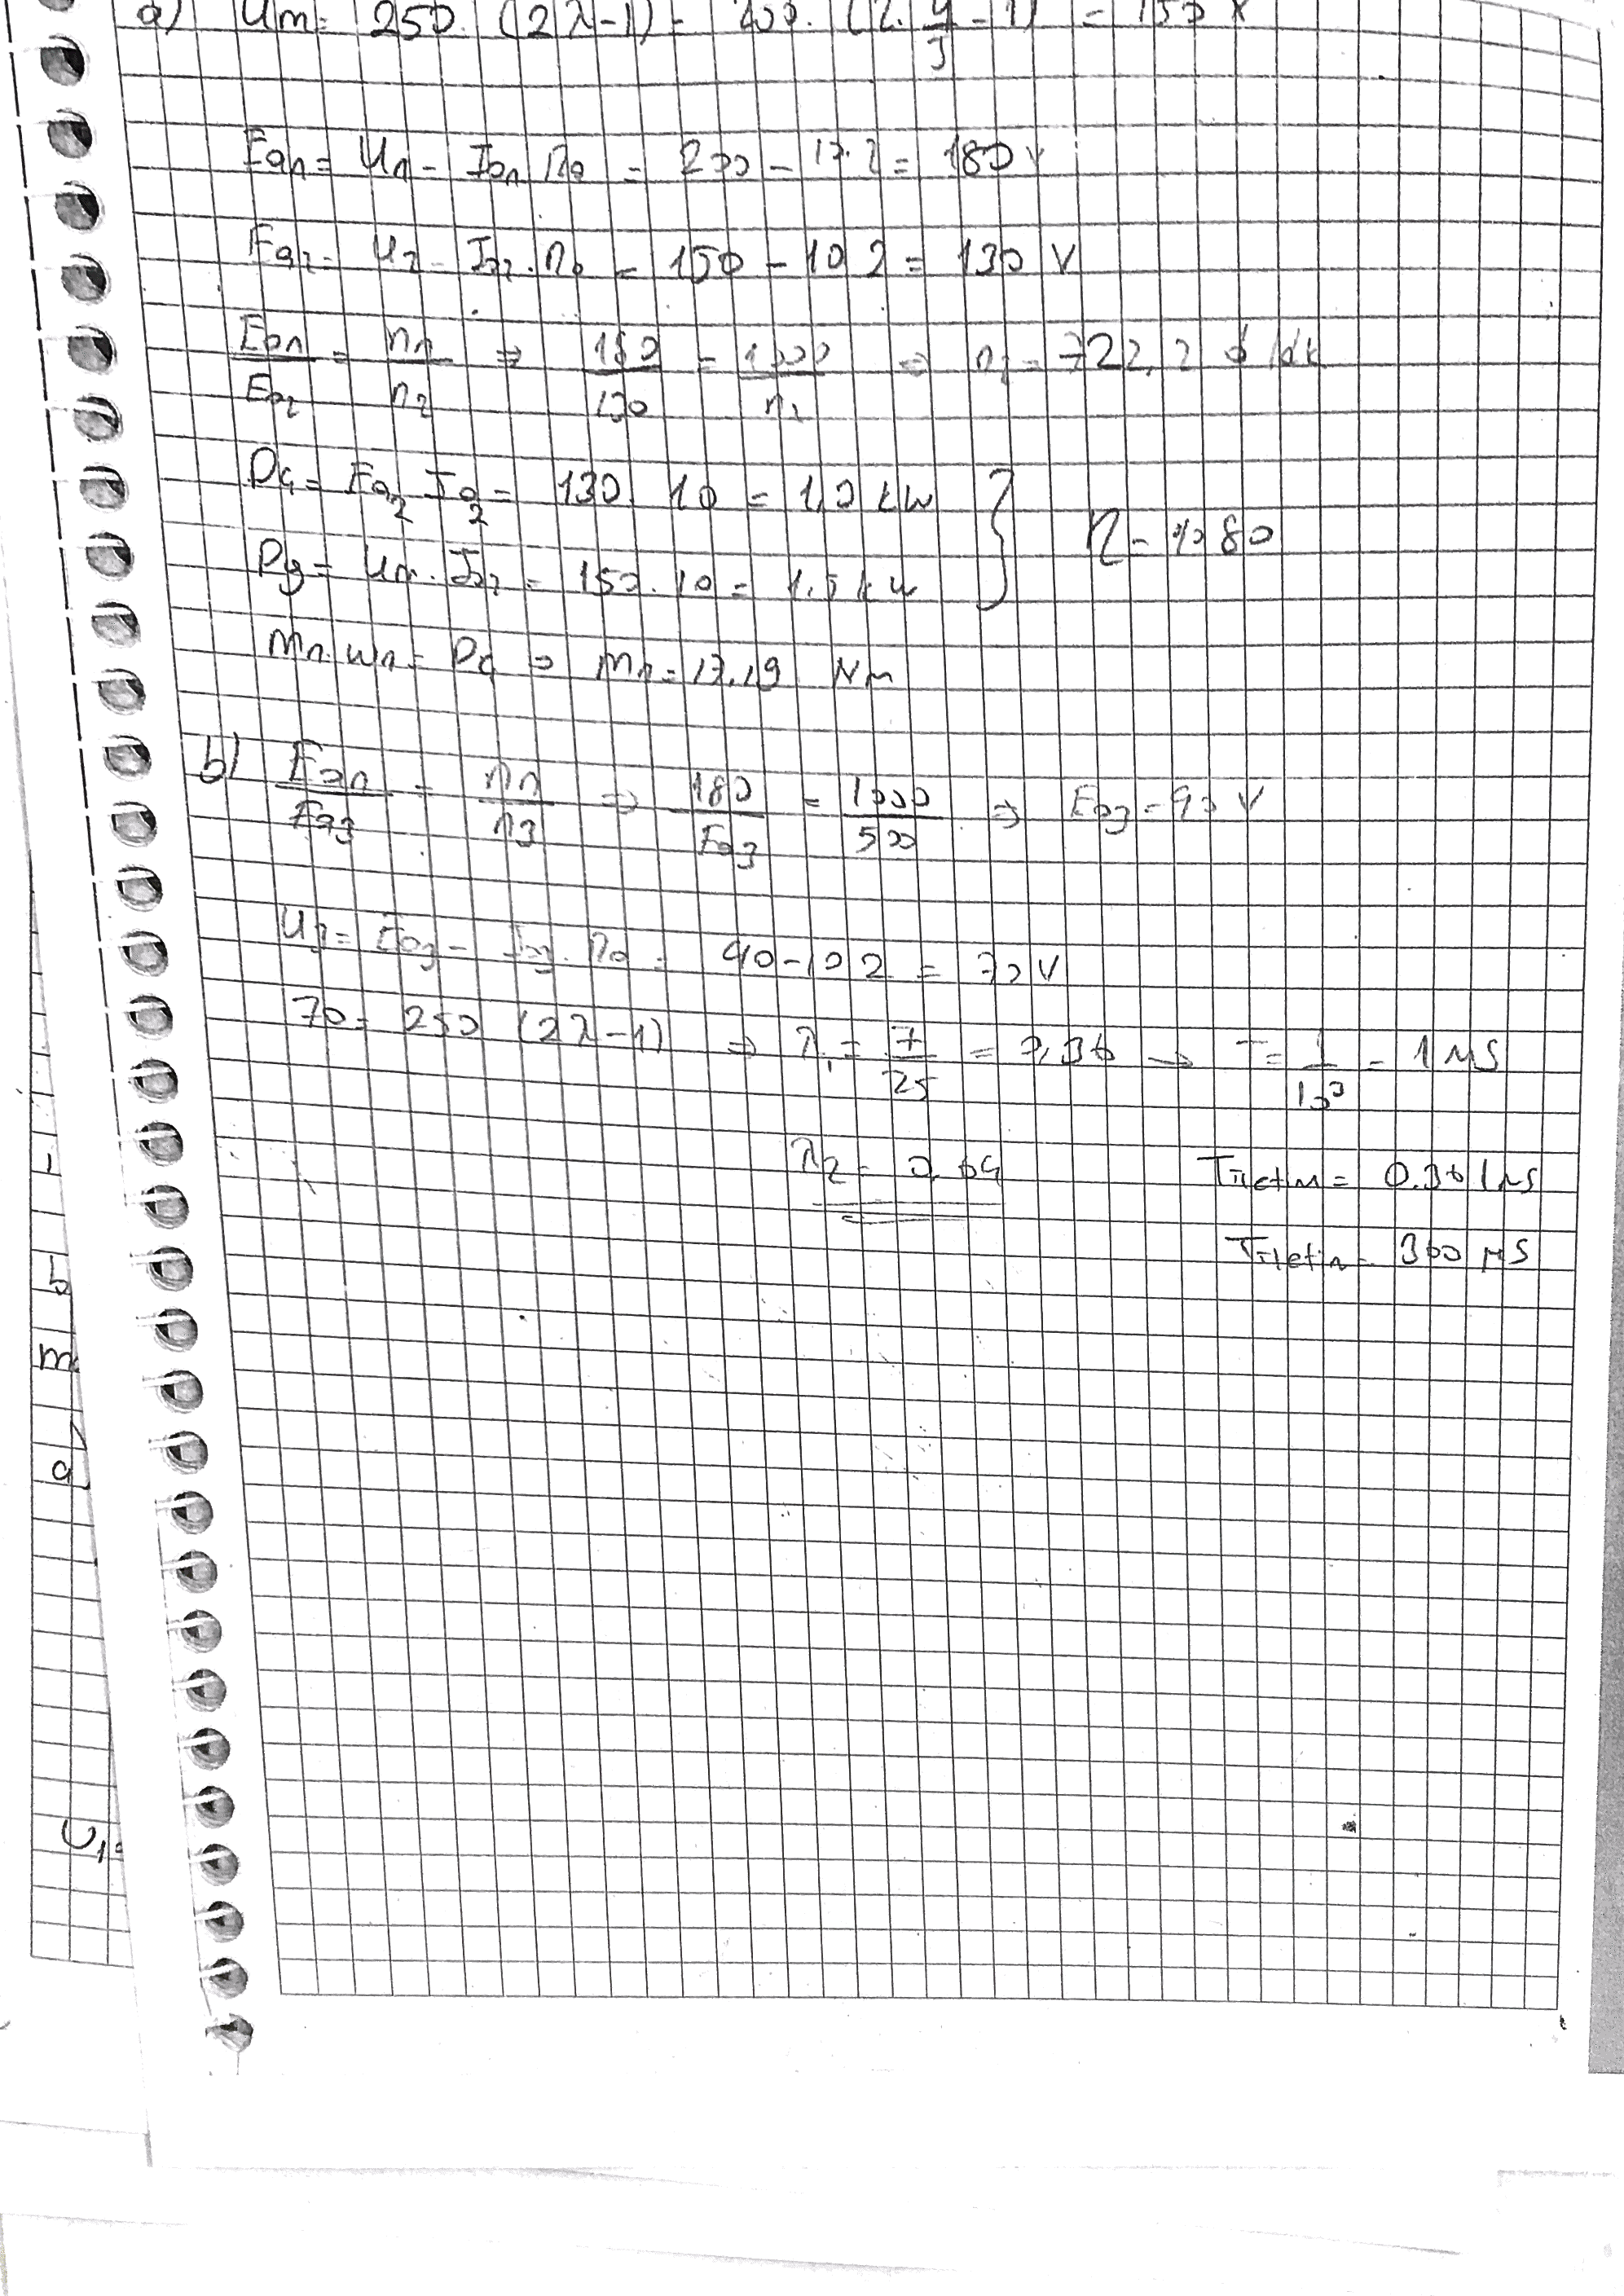 a) Um = 250. (2λ-1) = 250. (2. 4/5 - 1) = 150 V
Ean = Un - Ian.Ra = 200 - 10.2 = 180 V
Ea2 = U2 - Ia2.Ra = 150 - 10 2 = 130 V
Ean/Ea2 = nn/n2 ⇒ 180/130 = 1000/n2 ⇒ n2 = 722,2 d/dk
Pç = Ea2 Ia2 = 130 10 = 1,3 kW
η = %80
Pg = Um.Ia2 = 150.10 = 1.5 kW
Mn.wn = Pç ⇒ Mn = 17.19 Nm
b) Ean/Ea3 = nn/n3 ⇒ 180/Ea3 = 1000/500 ⇒ Ea3 = 90 V
U3 = Ea3 - Ia3.Ra = 90-10 2 = 70 V
70 = 250 (2λ-1) ⇒ λ1 = 7/25 = 0,36 → T = 1/10³ = 1 ms
λ2 = 0.64
Tiletim = 0.36 1ms
Tiletim = 360 μs
5
m
a)
U1=